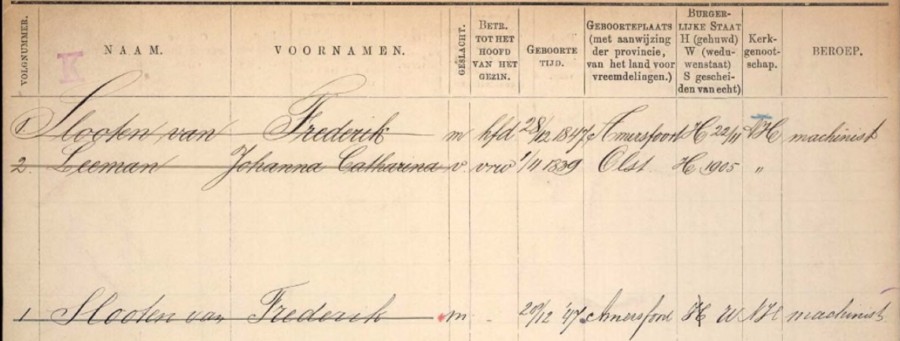 VOLGNUMMER. NAAM. VOORNAMEN. GESLACHT. BETR. TOT HET HOOFD VAN HET GEZIN. GEBOORTE TIJD. GEBOORTEPLAATS (met aanwijzing der provincie, van het land voor vreemdelingen.) BURGERLIJKE STAAT H (gehuwd) W (weduwenstaat) S gescheiden van echt) Kerkgenootschap. BEROEP.
K
1 Slooten van Frederik m hfd 28/12 1847 Amersfoort H 22/11 NH machinist
2 Leeman Johanna Catharina v. vrw 1/11 1839 Olst H 1905 "
1 Slooten van Frederik m 28/12 '47 Amersfoort H W NH machinist